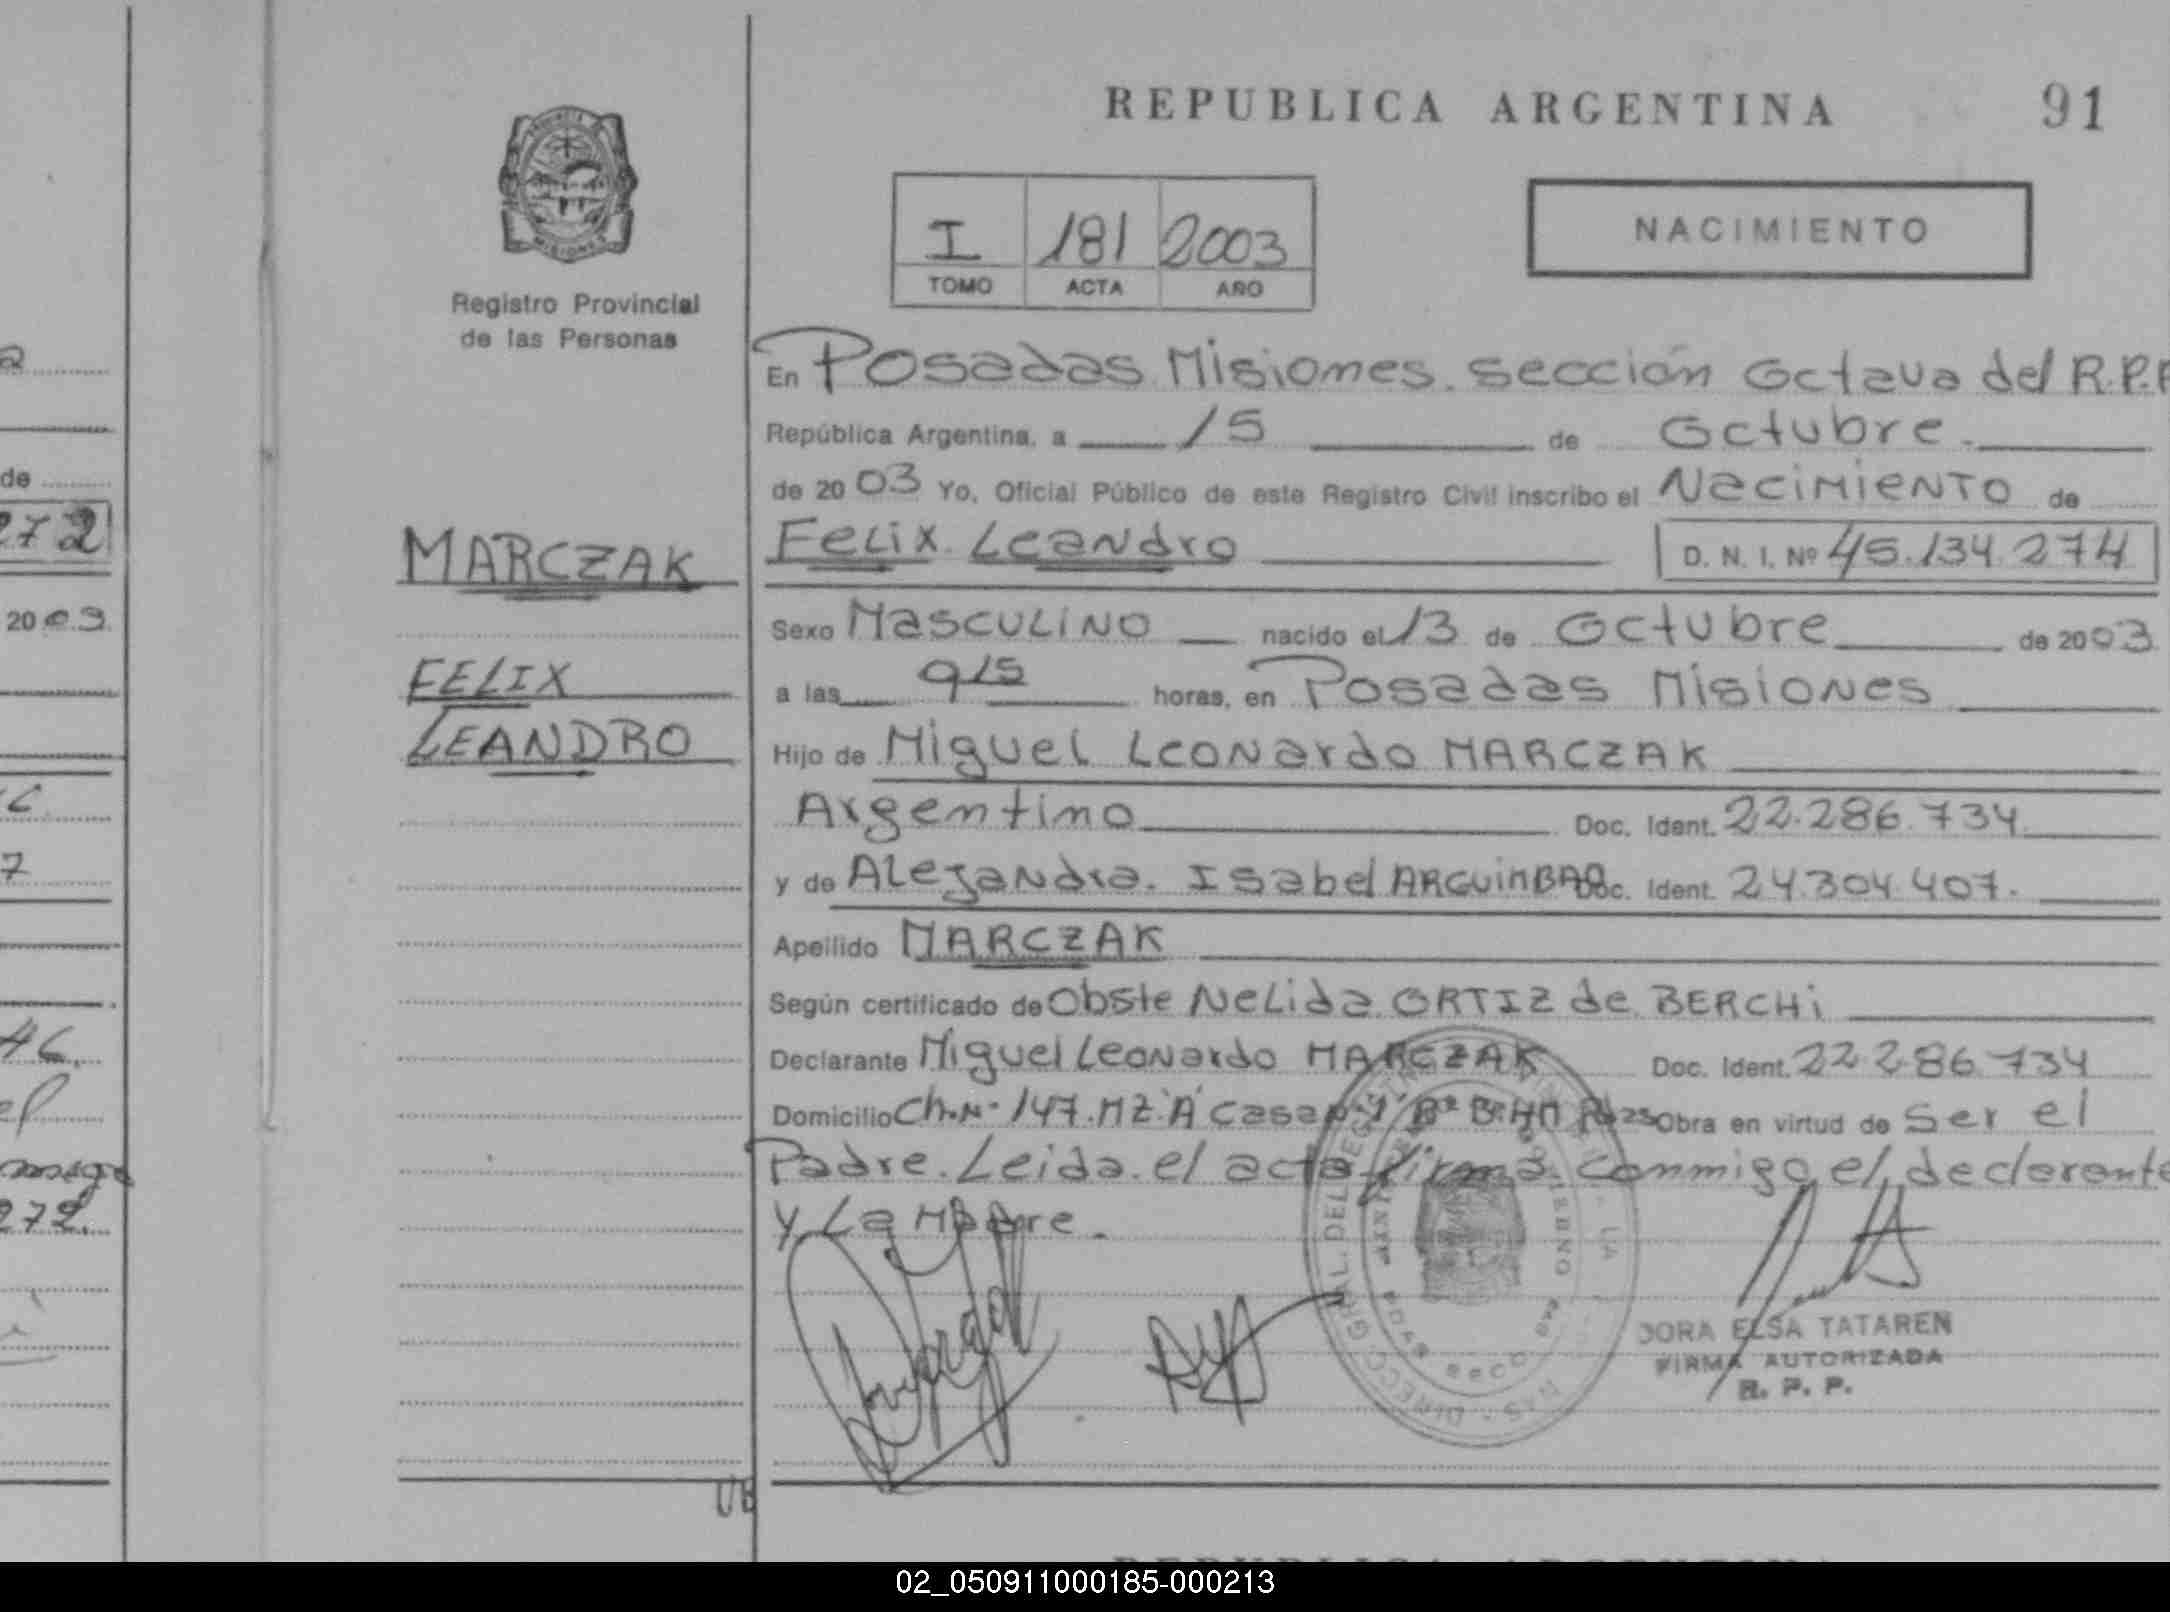 REPUBLICA ARGENTINA
91
PROVINCIA DE
MISIONES
Registro Provincial
de las Personas
I 181 2003
TOMO ACTA AÑO
NACIMIENTO
En Posadas Misiones. sección Octava del R.P.P
República Argentina, a 15 de Octubre.
de 2003 Yo, Oficial Público de este Registro Civil inscribo el Nacimiento de
MARCZAK
Felix Leandro D. N. I. Nº 45.134.274
Sexo Masculino nacido el 13 de Octubre de 2003
FELIX
a las 9 15 horas, en Posadas Misiones
LEANDRO
Hijo de Miguel Leonardo MARCZAK
Argentino Doc. Ident. 22.286.734
y de Alejandra. Isabel Doc. Ident. 24.304.407.
Apellido MARCZAK
Según certificado de Obste Nelida ORTIZ de BERCHi
Declarante Miguel Leonardo MARCZAK Doc. Ident. 22.286.734
Domicilio Ch. Nº 147. MZ "A" Casa Obra en virtud de Ser el
Padre. Leida. el acta firma conmigo el declarante
y La Madre.
DORA ELSA TATAREN
FIRMA AUTORIZADA
R. P. P.
a
de
272
2003
7
46.
272.
02_050911000185-000213